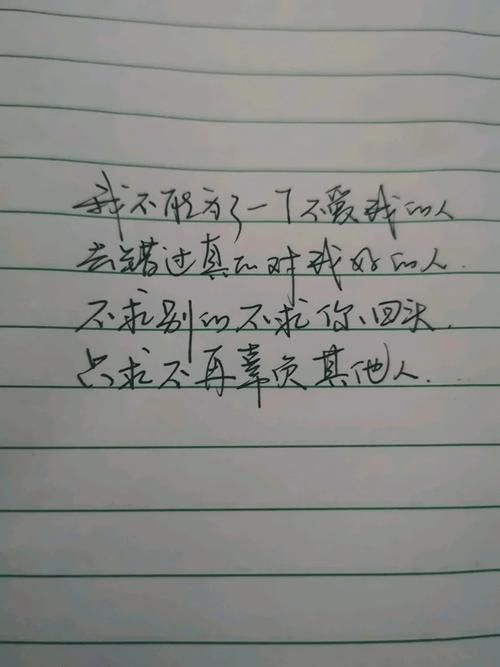 我不能为了一个不爱我的人
去错过真正对我好的人.
不求别的不求你回头.
只求不再辜负其他人.